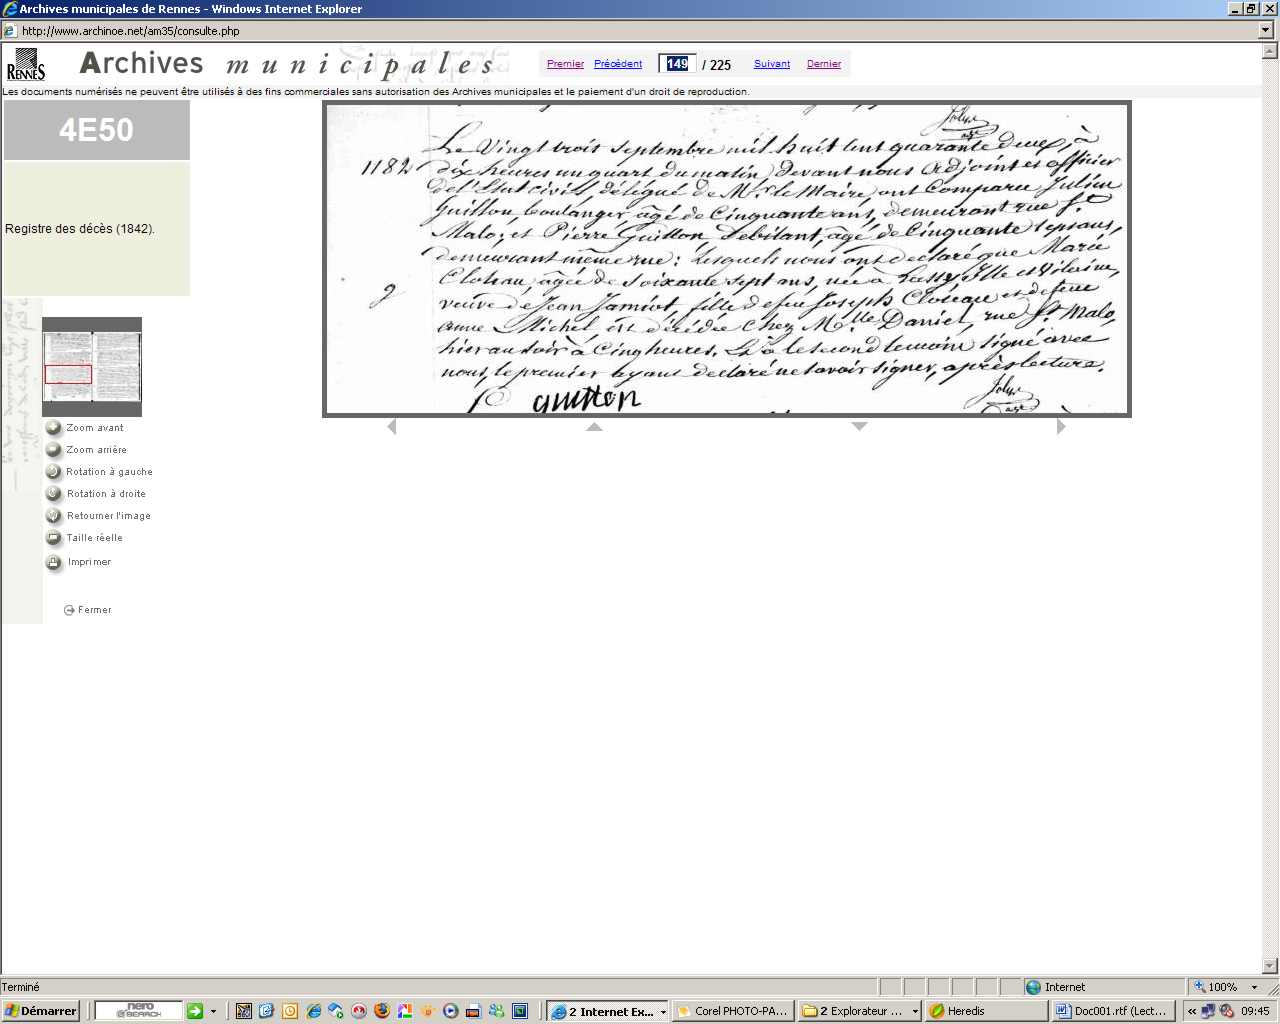 Archives municipales de Rennes - Windows Internet Explorer
http://www.archinoe.net/am35/consulte.php
RENNES
Archives municipales
Premier Précédent 149 / 225 Suivant Dernier
Les documents numérisés ne peuvent être utilisés à des fins commerciales sans autorisation des Archives municipales et le paiement d'un droit de reproduction.
4E50
Registre des décès (1842).
Le Vingt trois Septembre mil huit cent quarante deux, à
1182 dix heures un quart du matin, Devant nous Adjoint et officier
de l'Etat civil, délégué de Mr le Maire, ont Comparu Julien
Guitton, boulanger, âgé de Cinquante ans, demeurant rue St
Malo, et Pierre Guitton, Debitant, âgé de Cinquante sept ans,
demeurant même rue; Lesquels nous ont déclaré que Marie
Cloteau, âgée de Soixante sept ans, née à Ille et Vilaine,
2 veuve de Jean fille de feu Joseph Cloteau et de feue
Anne Michel est décédée Chez Mlle Daniel, rue St Malo,
hier au soir à Cinq heures. Et a le second temoin signé avec
nous, le premier ayant déclaré ne savoir signer, après lecture.
guitton
Zoom avant
Zoom arrière
Rotation à gauche
Rotation à droite
Retourner l'image
Taille réelle
Imprimer
Fermer
Terminé
Internet
100%
Démarrer
nero
SEARCH
2 Internet Ex...
Corel PHOTO-PA...
2 Explorateur ...
Heredis
Doc001.rtf (Lect...
09:45